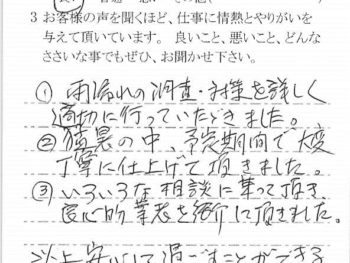 3 お客様の声を聞くほど、仕事に情熱とやりがいを
与えて頂いています。 良いこと、悪いこと、どんな
ささいな事でもぜひ、お聞かせ下さい。
① 雨漏れの調査・対策を詳しく
適切に行っていただきました。
② 猛暑の中、予定期間で大変
丁寧に仕上げて頂きました。
③ いろいろな相談に乗って頂き、
良心的業者を紹介して頂きました。
以上安心して過ごすことができる